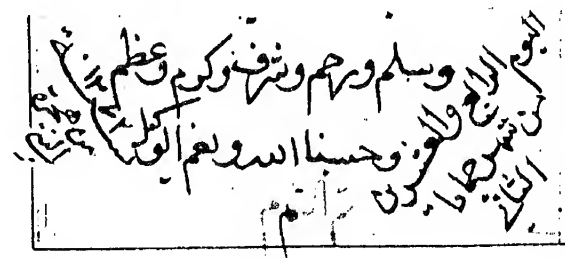 وسلم ورحم وشرف وكرم وعظم
وحسبنا الله ونعم الوكيل
اليوم الرابع والعشرين
من شهر جماد
الثاني